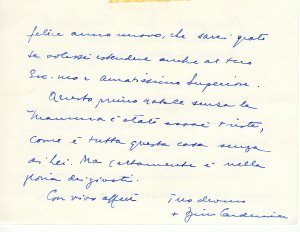 felice anno nuovo, che sarei grato
se volessi estendere anche al tuo
Ecc.mo e amatissimo Superiore.
Questo primo natale senza la
Mamma è stato assai triste,
come è tutta questa casa senza
di Lei. Ma certamente è nella
gloria dei giusti.
Con vivo affetto tuo dev.mo
+